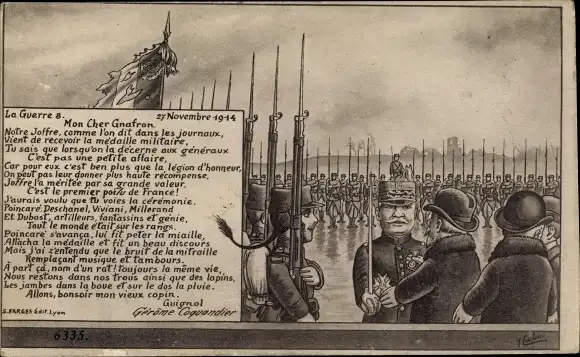 La Guerre 8. 27 Novembre 1914
Mon Cher Gnafron
Notre Joffre, comme l'on dit dans les journaux,
Vient de recevoir la médaille militaire,
Tu sais que lorsqu'on la décerne aux généraux
C'est pas une petite affaire,
Car pour eux c'est ben plus que la légion d'honneur,
On peut pas leur donner plus haute récompense.
Joffre l'a méritée par sa grande valeur.
C'est le premier poilu de France!
J'aurais voulu que tu voies la cérémonie.
Poincaré, Deschanel, Viviani, Millerand
Et Dubost, artilleurs, fantassins et génie,
Tout le monde était sur les rangs.
Poincaré s'avança, lui fit péter la miaille,
Attacha la médaille et fit un beau discours
Mais j'ai z'entendu que le bruit de la mitraille
Remplaçant musique et tambours.
À part ça, nom d'un rat! toujours la même vie,
Nous restons dans nos trous ainsi que des lapins,
Les jambes dans la boue et sur le dos la pluie.
Allons, bonsoir mon vieux copin.
Guignol
Gérôme Coquandier
S. FARGES Édit. Lyon
6335.